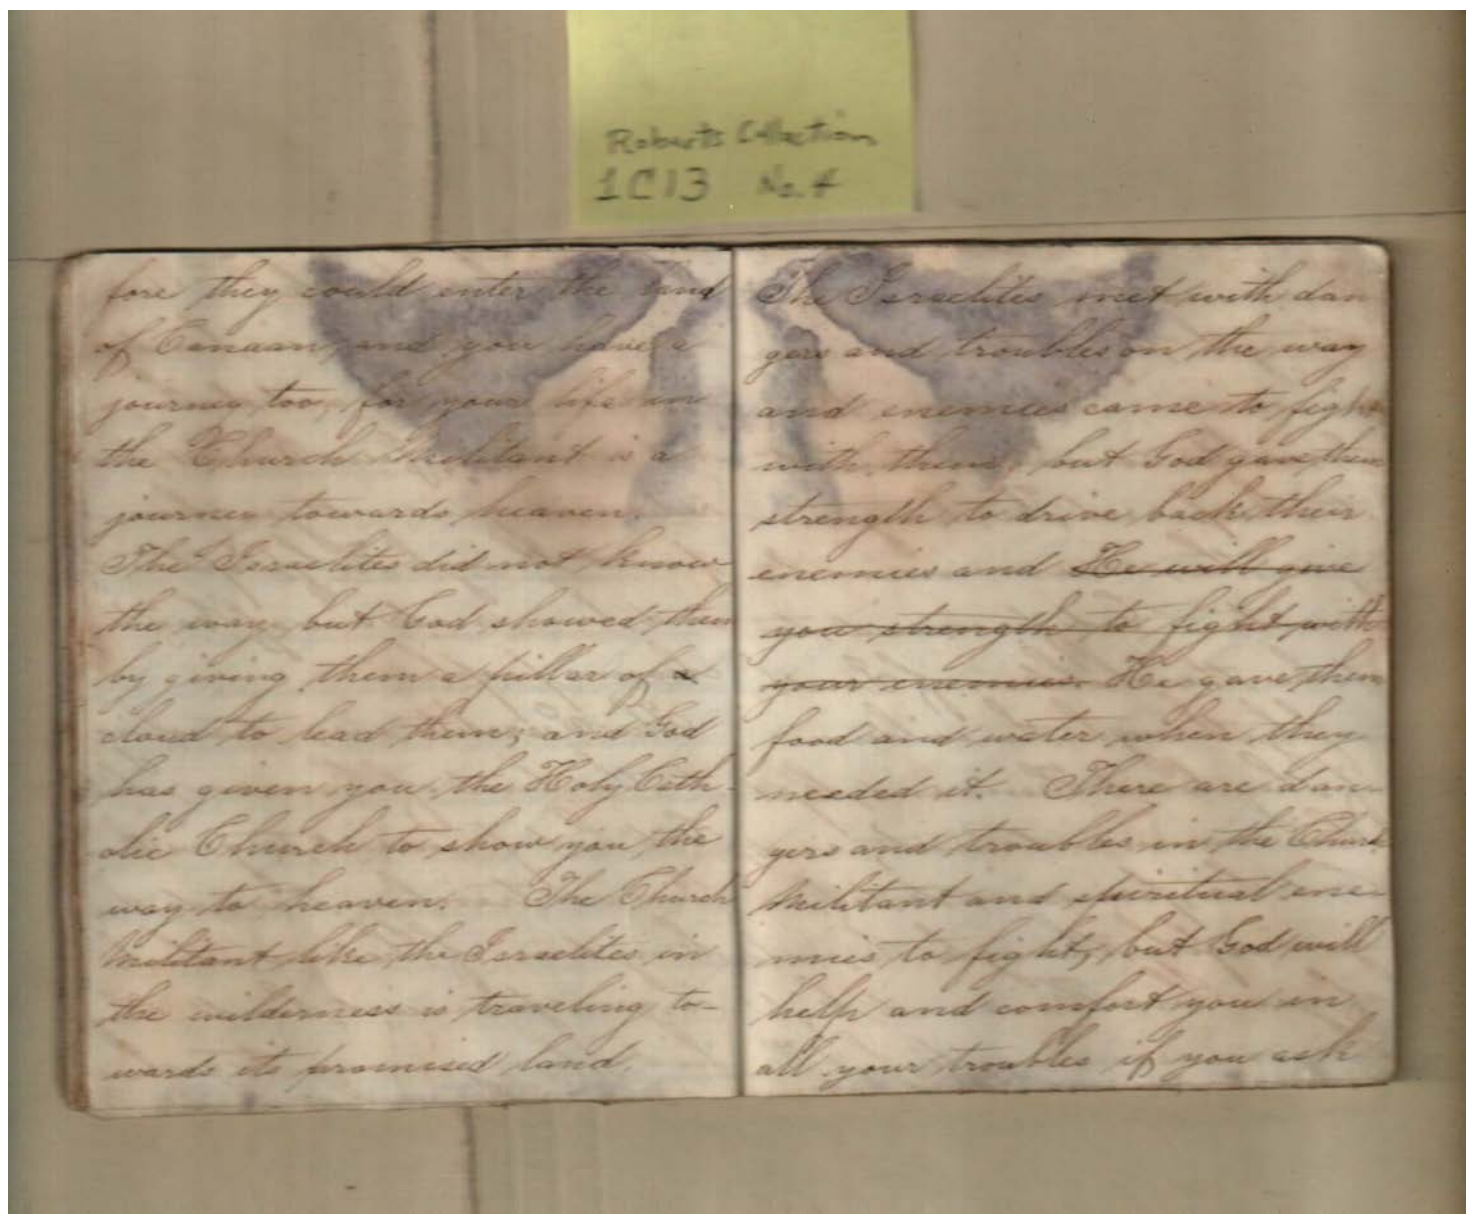 Roberts Collection
1C13 No. 4
fore they could enter the land
of Canaan, and you have a
journey too, for your life in
the Church Militant is a
journey towards heaven.
The Israelites did not know
the way, but God showed them
by giving them a pillar of a
cloud to lead them; and God
has given you the Holy Cath-
olic Church to show you the
way to heaven. The Church
Militant like the Israelites in
the wilderness is traveling to-
wards its promised land.
The Israelites met with dan
gers and troubles on the way
and enemies came to fight
with them, but God gave them
strength to drive back their
enemies and He will give
you strength to fight with
your enemies. He gave them
food and water when they
needed it. There are dan-
gers and troubles in the Church
Militant and spiritual ene-
mies to fight, but God will
help and comfort you in
all your troubles if you ask